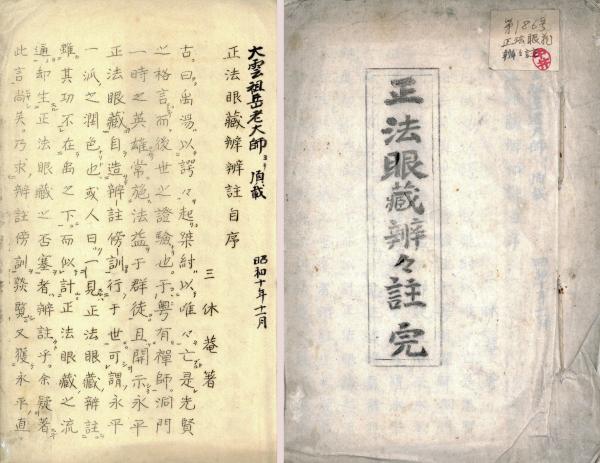 第186号
正法眼蔵
辨々註
正法眼藏辨々註 完
大雲祖岳老大師ヨリ頂戴 昭和十年十一月
正法眼藏辨辨註自序
三休菴著
古曰禹湯以諤々起桀紂以唯々亡是先賢
之格言而後世之證驗也于粤有禪師洞門
一時之英雄常施法益于群徒且開示永平
正法眼藏自造辨註傍訓行于世可謂永平
一派之潤色也或人曰一見正法眼藏辨註
雖其功不在禹之下而似計正法眼藏之流
通却生正法眼藏之否塞者辨註乎余疑著
此言尚矣乃求辨註傍訓發覽又獲永平直